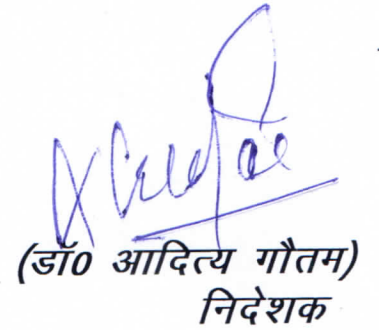 (डॉ0 आदित्य गौतम)
निदेशक